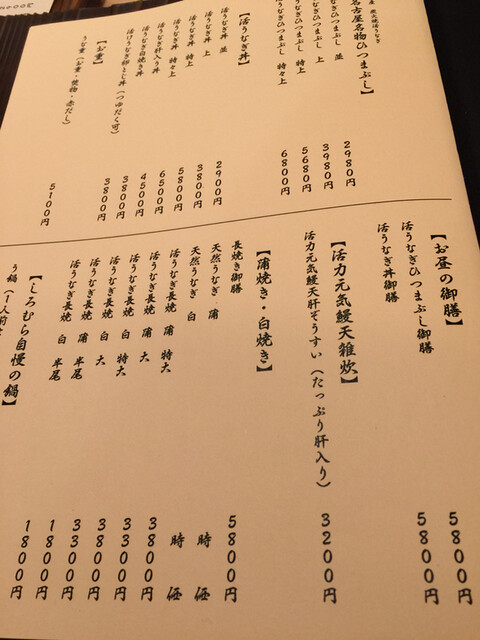 産 炭火焼活うなぎ
名古屋名物ひつまぶし】
なぎひつまぶし 並 2980円
うなぎひつまぶし 上 3980円
うなぎひつまぶし 特上 5680円
活うなぎひつまぶし 特々上 6800円
【活うなぎ丼】
活うなぎ丼 並 2900円
活うなぎ丼 上 3800円
活うなぎ丼 特上 5800円
活うなぎ丼 特々上 6500円
活うなぎ肝入り丼 4500円
活うなぎ白焼き丼 3800円
活けうなぎ卵とじ丼（つゆだく可） 3800円
【お重】
うな重（お重・焼物・赤だし） 5100円
【お昼の御膳】
活うなぎひつまぶし御膳 5800円
活うなぎ丼御膳 5800円
【活力元気鰻天雑炊】
活力元気鰻天肝ぞうすい（たっぷり肝入り） 3200円
【蒲焼き・白焼き】
長焼き御膳 5800円
天然うなぎ 蒲 時価
天然うなぎ 白 時価
活うなぎ長焼 蒲 特大 3800円
活うなぎ長焼 蒲 大 3300円
活うなぎ長焼 白 特大 3800円
活うなぎ長焼 白 大 3300円
活うなぎ長焼 蒲 半尾 1800円
活うなぎ長焼 白 半尾 1800円
【しろむら自慢の鍋】
う鍋（1人前